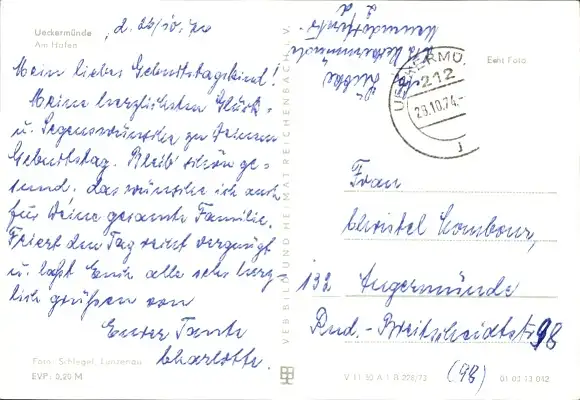 Ueckermünde
Am Hafen
Mein liebes Geburtstagskind!
Meine herzlichsten Glück-
u. Segenswünsche zu Deinem
Geburtstag. Bleib' schön ge-
sund, das wünsche ich auch
für Deine gesamte Familie.
Feiert den Tag recht vergnügt
u. laßt Euch alle sehr herz-
lich grüßen von
Eurer Tante
Charlotte.
Foto: Schlegel, Lunzenau
EVP: 0,20 M
VEB BILD UND HEIMAT REICHENBACH I. V.
Echt Foto
212
28.10.74.-
j
Frau
Christel
132 Angermünde
Rud.-Breitscheidtstr 98
(98)
V 11 50 A 1 B 228/73
01 03 13 042